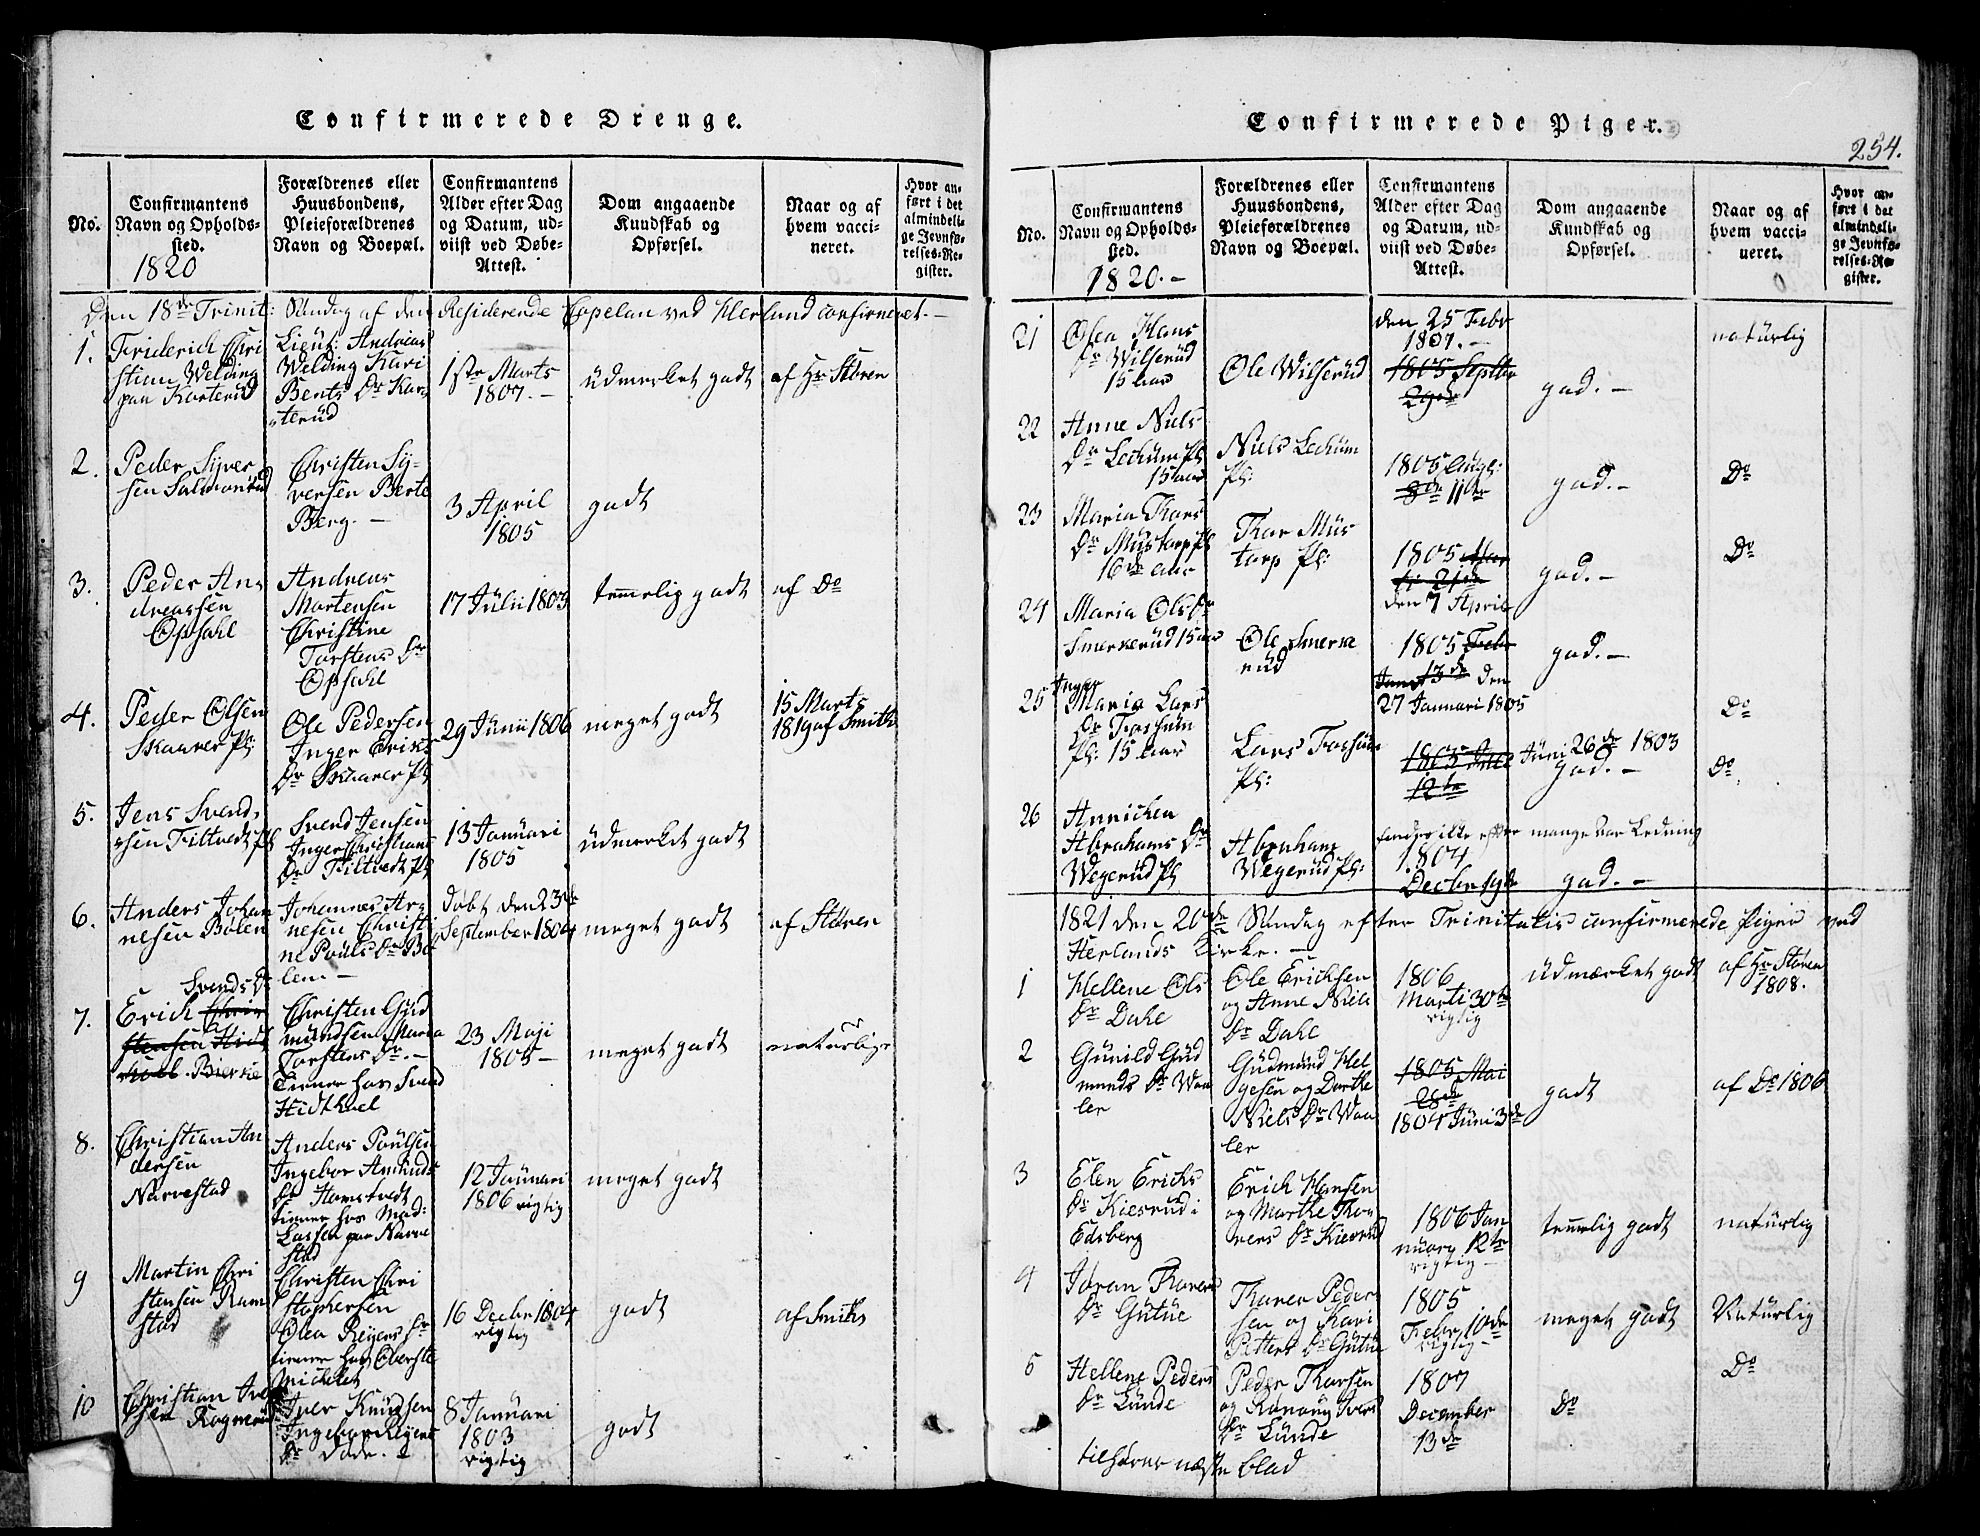 Confirmerede Drenge.
No.
Confirmantens
Navn og Opholds-
sted.
1820
Forældrenes eller
Huusbondens,
Pleieforældrenes
Navn og Boepæl.
Confirmantens
Alder efter Dag
og Datum, ud-
viist ved Døbe-
Attest.
Dom angaaende
Kundskab og
Opførsel.
Naar og af
hvem vacci-
neret.
Hvor an-
ført i det
almindeli-
ge Jevnfø-
relses-Re-
gister.
Den 18de Trinit: Søndag af den Residerende Capelan ved Herland confirmeret.
1.
Friderich Chri
stian Welding
paa Karterud
Lieut: Andreas
Welding Kari
Bents Dr Kar-
terud
1ste Marts
1807.-
üdmerket godt
af Hr Støren
2.
Peder Syver
sen Salmonrud
Christen Sy-
versen Berte
Berg.-
3 April
1805
godt
3.
Peder An-
dreassen
Opsahl
Andreas
Martensen
Christine
Torstens Dr
Opsahl
17 Julii 1803
temmelig godt
af Do
4.
Peder Olsen
Skaarer Pl:
Ole Pedersen
Inger Eriks
Dr Skaarer Pl
29 Junii 1806
meget godt
15 Marts
1819 af Smith
5.
Jens Svend-
sen Tiltvedt Pl
Svend Jensen
Inger Christians
Dr Tiltvedt Pl
13 Januari
1805
üdmerket godt
6.
Anders Johan
nesen Bølen
Johannes Ar-
nesen Christi
ne Pouls Dr Bø
len -
døbt den 23de
September 1804
meget godt
af Støren
7.
Svends Dr
Erich Chri-
stensen Hidt
hoel Bierke
Christen Gud
mundsen Maria
Torstens Dr.-
tiener hos Svend
Hidthoel
23 Maji
1805-
meget godt
naturlige
8.
Christian An
dersen
Narvestad
Anders Poulsen
Ingebor Amunds
Dr Hamstvedt
tiener hos Mad:
Lassen paa Narve
stad
12 Januari
1806 rigtig
meget godt
9
Martin Chri
stensen Ram
stad
Christen Chri
stophersen
Olea Reyers Dr
tiener hos Oberste
Michelet
16 Decbr 1804
rigtig
godt
af Smith
10
Christian Iver
sen Kogmoen
Iver Knudsen
Ingebor Reyers
Dr Dode.-
8 Januari
1803
rigtig
godt
Confirmerede Piger.
254.
No.
Confirmantens
Navn og Opholds-
sted.
1820.-
Forældrenes eller
Huusbondens,
Pleieforældrenes
Navn og Boepæl.
Confirmantens
Alder efter Dag
og Datum, ud-
viist ved Døbe-
Attest.
Dom angaaende
Kundskab og
Opførsel.
Naar og af
hvem vacci-
neret.
Hvor an-
ført i det
almindeli-
ge Jevnfø-
relses-Re-
gister.
21
Olea Hans
Dr Wilserud
15 aar
Ole Wilserud
den 25 Febr
1807.-
1805 Septbr
29de
god.-
naturlig
22
Anne Niels
Dr Lechum Pl
15 aar
Niels Lechum
Pl:
1805 Aug:
8de 11te
god.-
Do
23
Maria Thors
Dr Mustorp Pl
16 de aar
Thor Mus
torp Pl:
1805 Mar
ti 21de
den 7 April
god.-
Do
24
Maria Ols Dr
Smerkerud 15 aar
Ole Smerke
rud
1805 Febr
13de den
27 Januari 1805
god.-
25
Inger
Maria Lars
Dr Fossum
Pl: 15 aar
Lars Fossum
Pl:
1805
12te
Juni 26de 1803
god.-
Do
Do
26
Annichen
Abrahams Dr
Wegerud Pl
Abraham
Wegerud Pl:
findes ikke efter mange Aar Ledning
1804
Decbr
god.-
1821 den 20de Søndag efter Trinitatis confirmerede Piger ved
Herlands Kirke.-
1
Hellene Ols
Dr Dahl
Ole Erichsen
og Anne Niels
Dr Dahl
1806
Marti 30te
rigtig
udmærket godt
af Hr Støren
1808.
2
Gunild Gud
munds Dr Waa
ler
Gudmund Hel
gesen og Dorthe
Niels Dr Waa
ler
1805 Mai
28de
1804 Juni 3de
godt
af Do 1806
3
Elen Erichs
Dr Kiesrud i
Edsberg
Erich Hansen
og Marthe Tho
rers Dr Kiesrud
1806 Jan
nuary 12te
rigtig -
temmelig godt
naturlig
4
Joran Thorers
Dr Gutue
Thorer Peder
sen og Kari
Petters Dr Gutue
1805
Febr 10de
rigtig -
meget godt
Naturlig
5
Hellene Peders
Dr Lunde
Peder Thorsen
og Rønnaug Ivers
Dr Lunde
1807
December
13de
Do
Do
tilhører næste blad